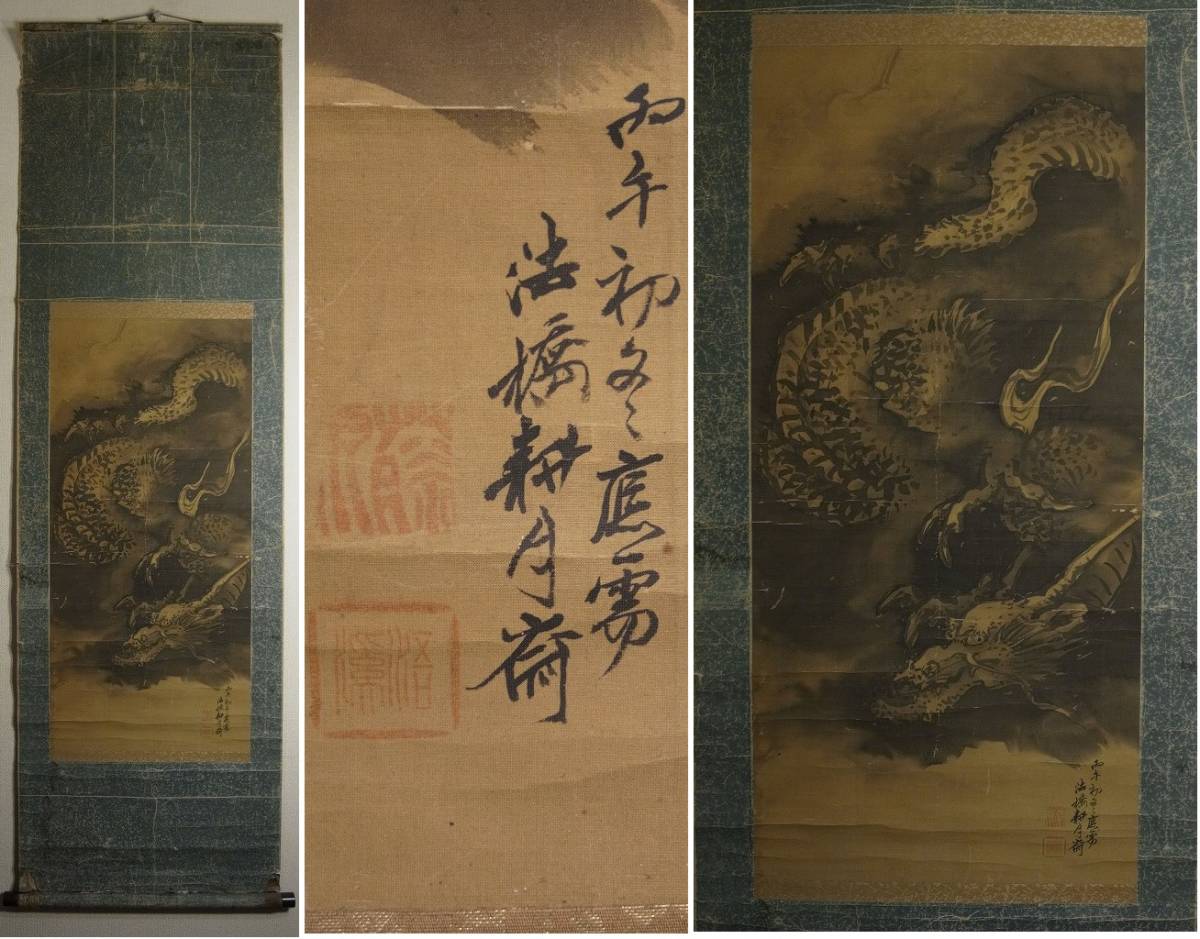 丙午初冬應需
法橋耕月齋
丙午初冬應需
法橋耕月齋